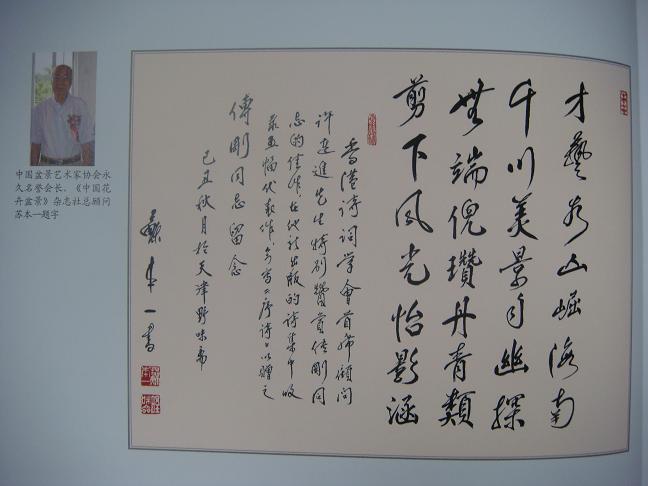 中国盆景艺术家协会永
久名誉会长、《中国花
卉盆景》杂志社总顾问
苏本一题字
才藝山崛海南
千川美景自幽探
無端倪瓚丹青類
剪下风光怡影涵
香港诗词学會首席顧问
許連進先生特别贊賞傅剛同
志的佳作,在他新出版的诗集中收
录五幅代表作,诗以贈之
傅剛同志留念
己丑秋月於天津野味斋
蘇本一書